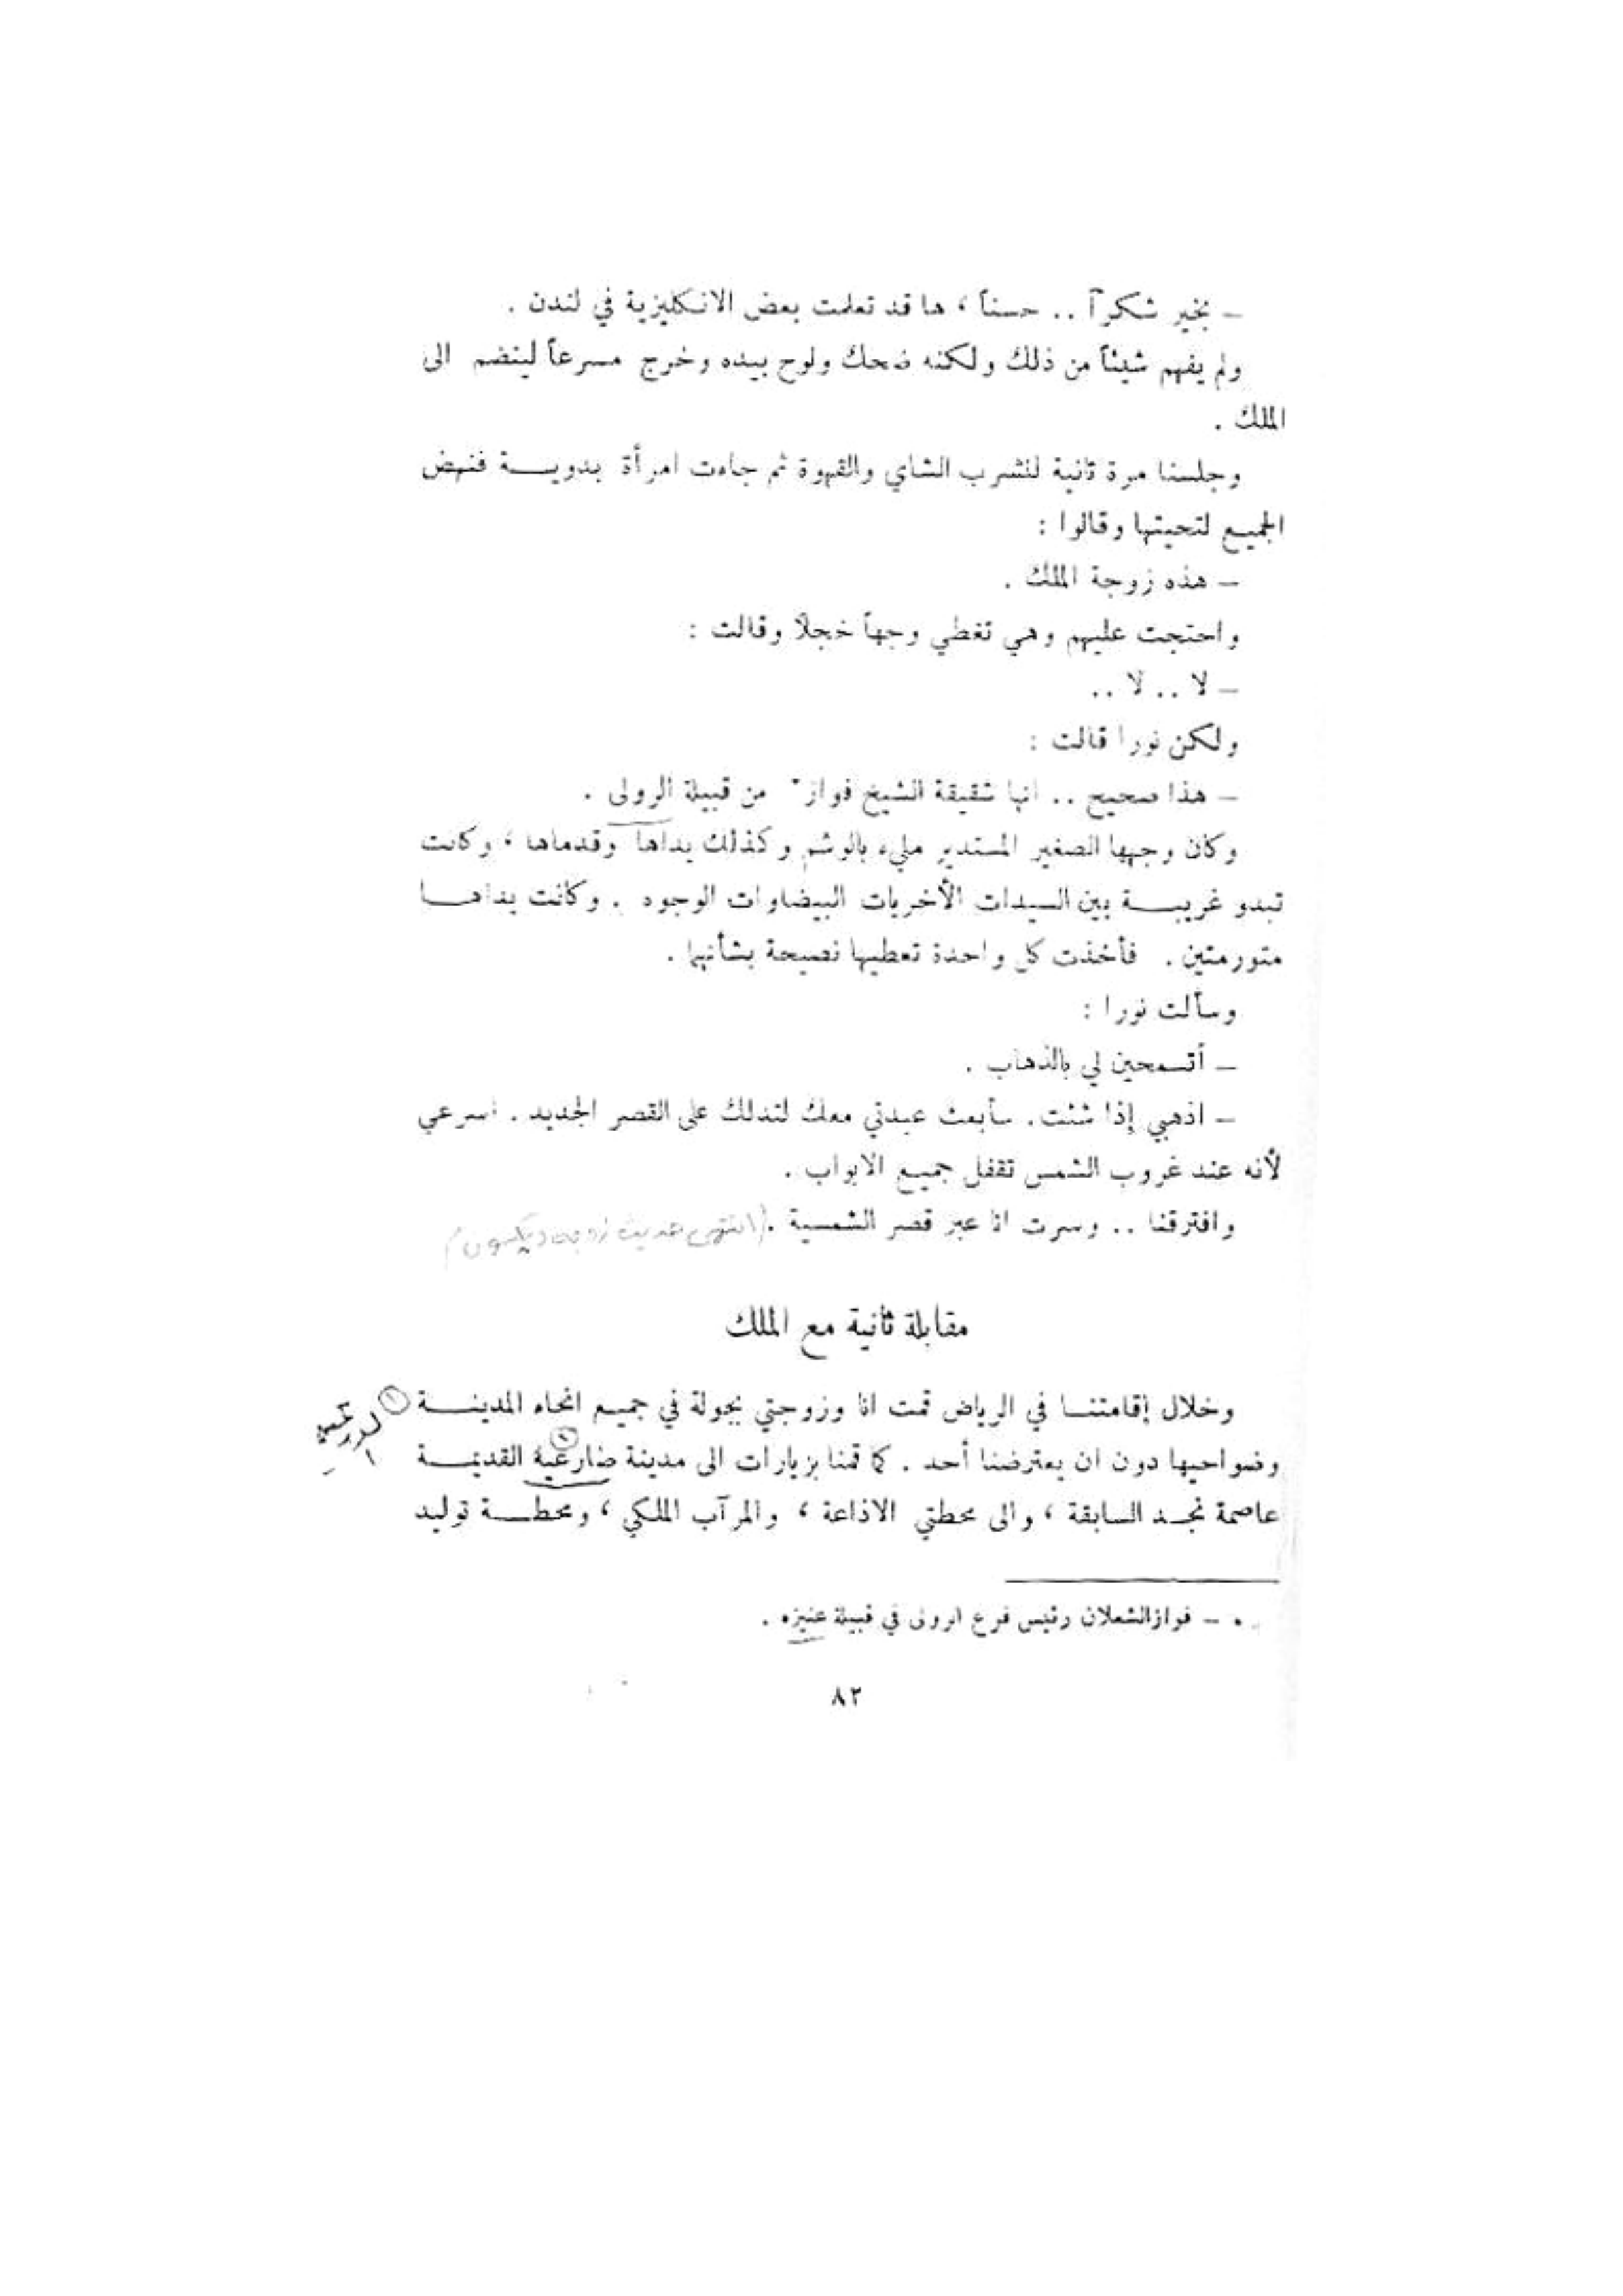 – بخير شكراً .. حسناً ، ها قد تعلمت بعض الانكليزية في لندن .
ولم يفهم شيئاً من ذلك ولكنه ضحك ولوح بيده وخرج مسرعاً لينضم الى
الملك .
وجلسنا مرة ثانية لنشرب الشاي والقهوة ثم جاءت امرأة بدويـــة فنهض
الجميع لتحيتها وقالوا :
– هذه زوجة الملك .
واحتجت عليهم وهي تغطي وجهاً خجلاً وقالت :
– لا .. لا ..
ولكن نورا قالت :
– هذا صحيح .. انها شقيقة الشيخ فواز * من قبيلة الرولى .
وكان وجهها الصغير المستدير مليء بالوشم وكذلك يداها وقدماها ، وكانت
تبدو غريبـــة بين السيدات الأخريات البيضاوات الوجوه . وكانت يداهـــا
متورمتين . فأخذت كل واحدة تعطيها نصيحة بشأنهما .
وسألت نورا :
– أتسمحين لي بالذهاب .
– اذهبي إذا شئت . سأبعث عبدتي معك لتدلك على القصر الجديد . اسرعي
لأنه عند غروب الشمس تقفل جميع الابواب .
وافترقنا .. وسرت انا عبر قصر الشمسية . (انتهى حديث زوجه ديكسون)
مقابلة ثانية مع الملك
وخلال إقامتنــا في الرياض قمت انا وزوجتي بجولة في جميع انحاء المدينـــة (١) الدرعية
وضواحيها دون ان يعترضنا أحد . كما قمنا بزيارات الى مدينة ضارعية (١) القديمـــة
عاصمة نجــد السابقة ، والى محطتي الاذاعة ، والمرآب الملكي ، ومحطـــة توليد
* – فواز الشعلان رئيس فرع الرولى في قبيلة عنيزه .
٨٢